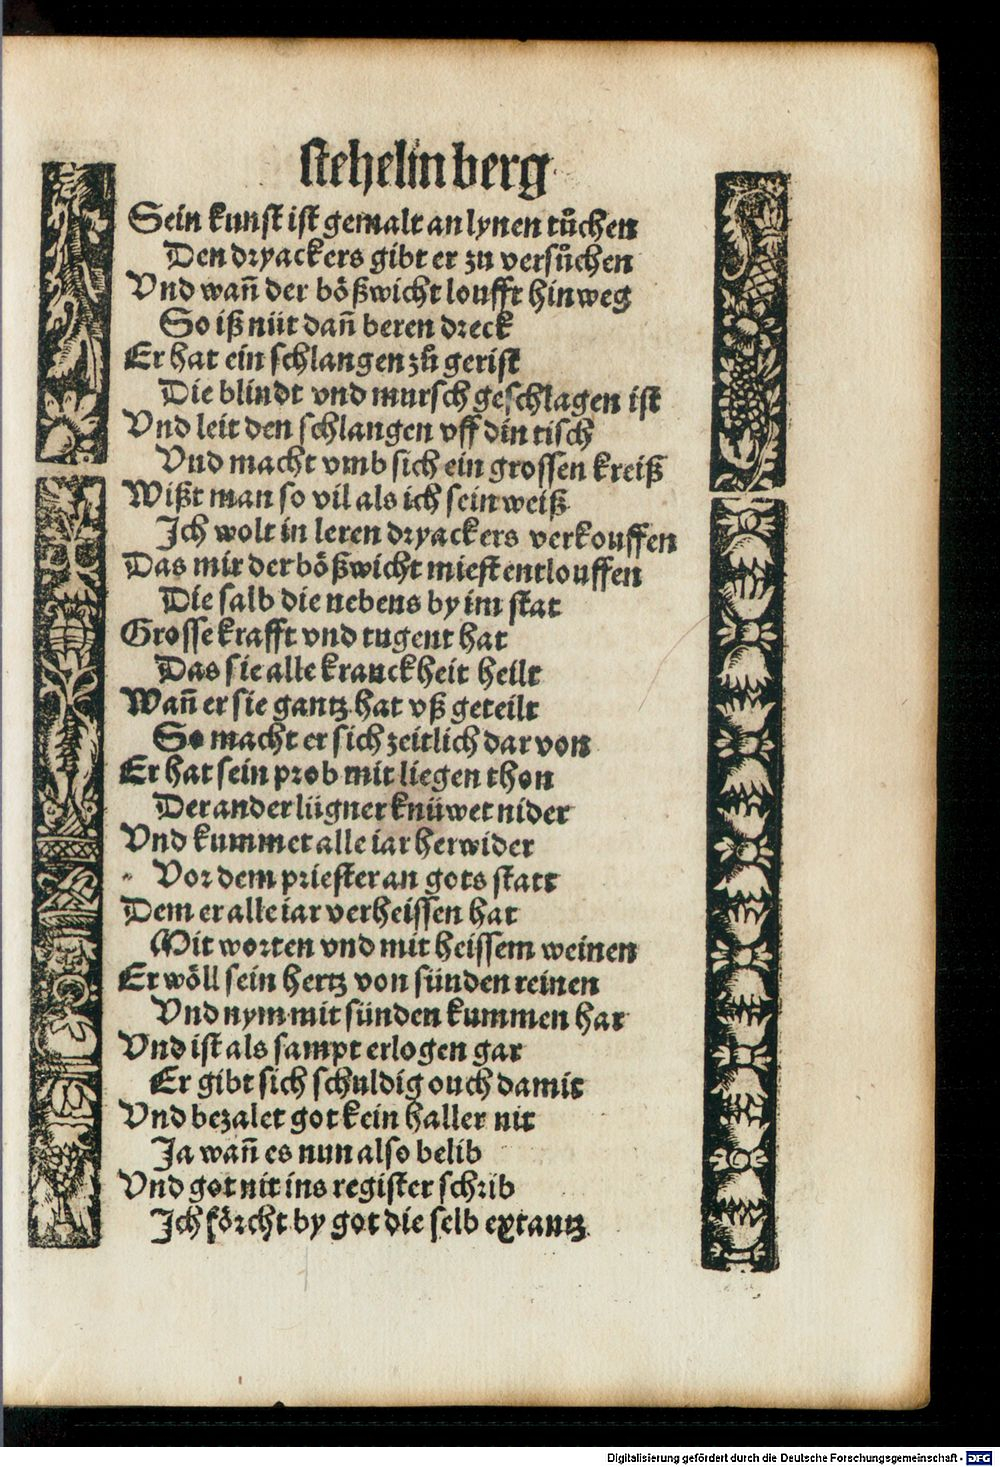 stehelin berg
Sein kunst ist gemalt an lynen tuͦchen
Den dryackers gibt er zu versuͦchen
Vnd wañ der bößwicht loufft hinweg
So iß nüt dañ beren dreck
Er hat ein schlangen zuͦ gerist
Die blindt vnd mursch geschlagen ist
Vnd leit den schlangen vff din tisch
Vnd macht vmb sich ein grossen kreiß
Wißt man so vil als ich sein weiß
Ich wolt in leren dryackers verkouffen
Das mir der bößwicht miest entlouffen
Die salb die nebens by im stat
Grosse krafft vnd tugent hat
Das sie alle kranckheit heilt
Wañ er sie gantz hat vß geteilt
So macht er sich zeitlich dar von
Er hat sein prob mit liegen thon
Der ander lügner knüwet nider
Vnd kummet alle iar herwider
Vor dem priester an gots statt
Dem er alle iar verheissen hat
Mit worten vnd mit heissem weinen
Er wöll sein hertz von sünden reinen
Vnd nym mit sünden kummen har
Vnd ist als sampt erlogen gar
Er gibt sich schuldig ouch damit
Vnd bezalet got kein haller nit
Ja wañ es nun also belib
Vnd got nit ins register schrib
Ich förcht by got die selb extantz
Digitalisierung gefördert durch die Deutsche Forschungsgemeinschaft - DFG